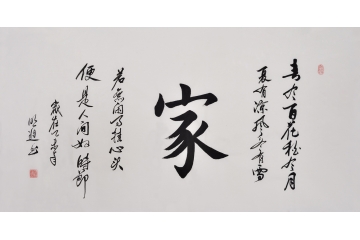 春有百花秋有月
夏有凉风冬有雪
家
若無闲事挂心头
便是人间好時節